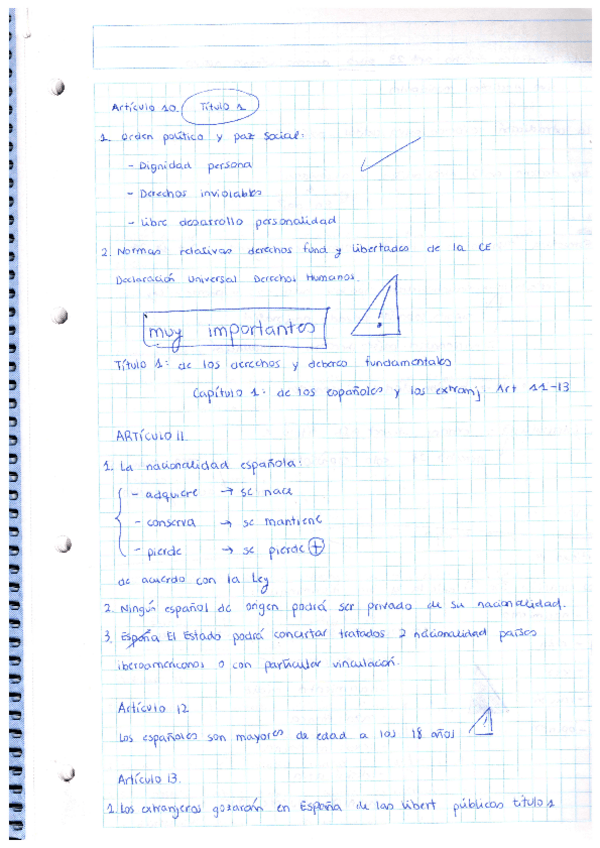 Artículo 10. Título 1
1. Orden político y paz social:
- Dignidad persona
- Derechos inviolables
- libre desarrollo personalidad
2. Normas relativas derechos fund y libertades de la CE
Declaración Universal Derechos Humanos.
muy importantes
!
Título 1: de los derechos y deberes fundamentales
Capítulo 1: de los españoles y los extranj Art 11-13
ARTÍCULO 11
1. La nacionalidad española:
- adquiere → se nace
- conserva → se mantiene
- pierde → se pierde +
de acuerdo con la Ley
2. Ningún español de origen podrá ser privado de su nacionalidad.
3. España El Estado podrá concertar tratados 2 nacionalidad países
iberoamericanos o con particular vinculación.
Artículo 12
Los españoles son mayores de edad a los 18 años !
Artículo 13.
1. Los extranjeros gozarán en España de las libert públicas título 1